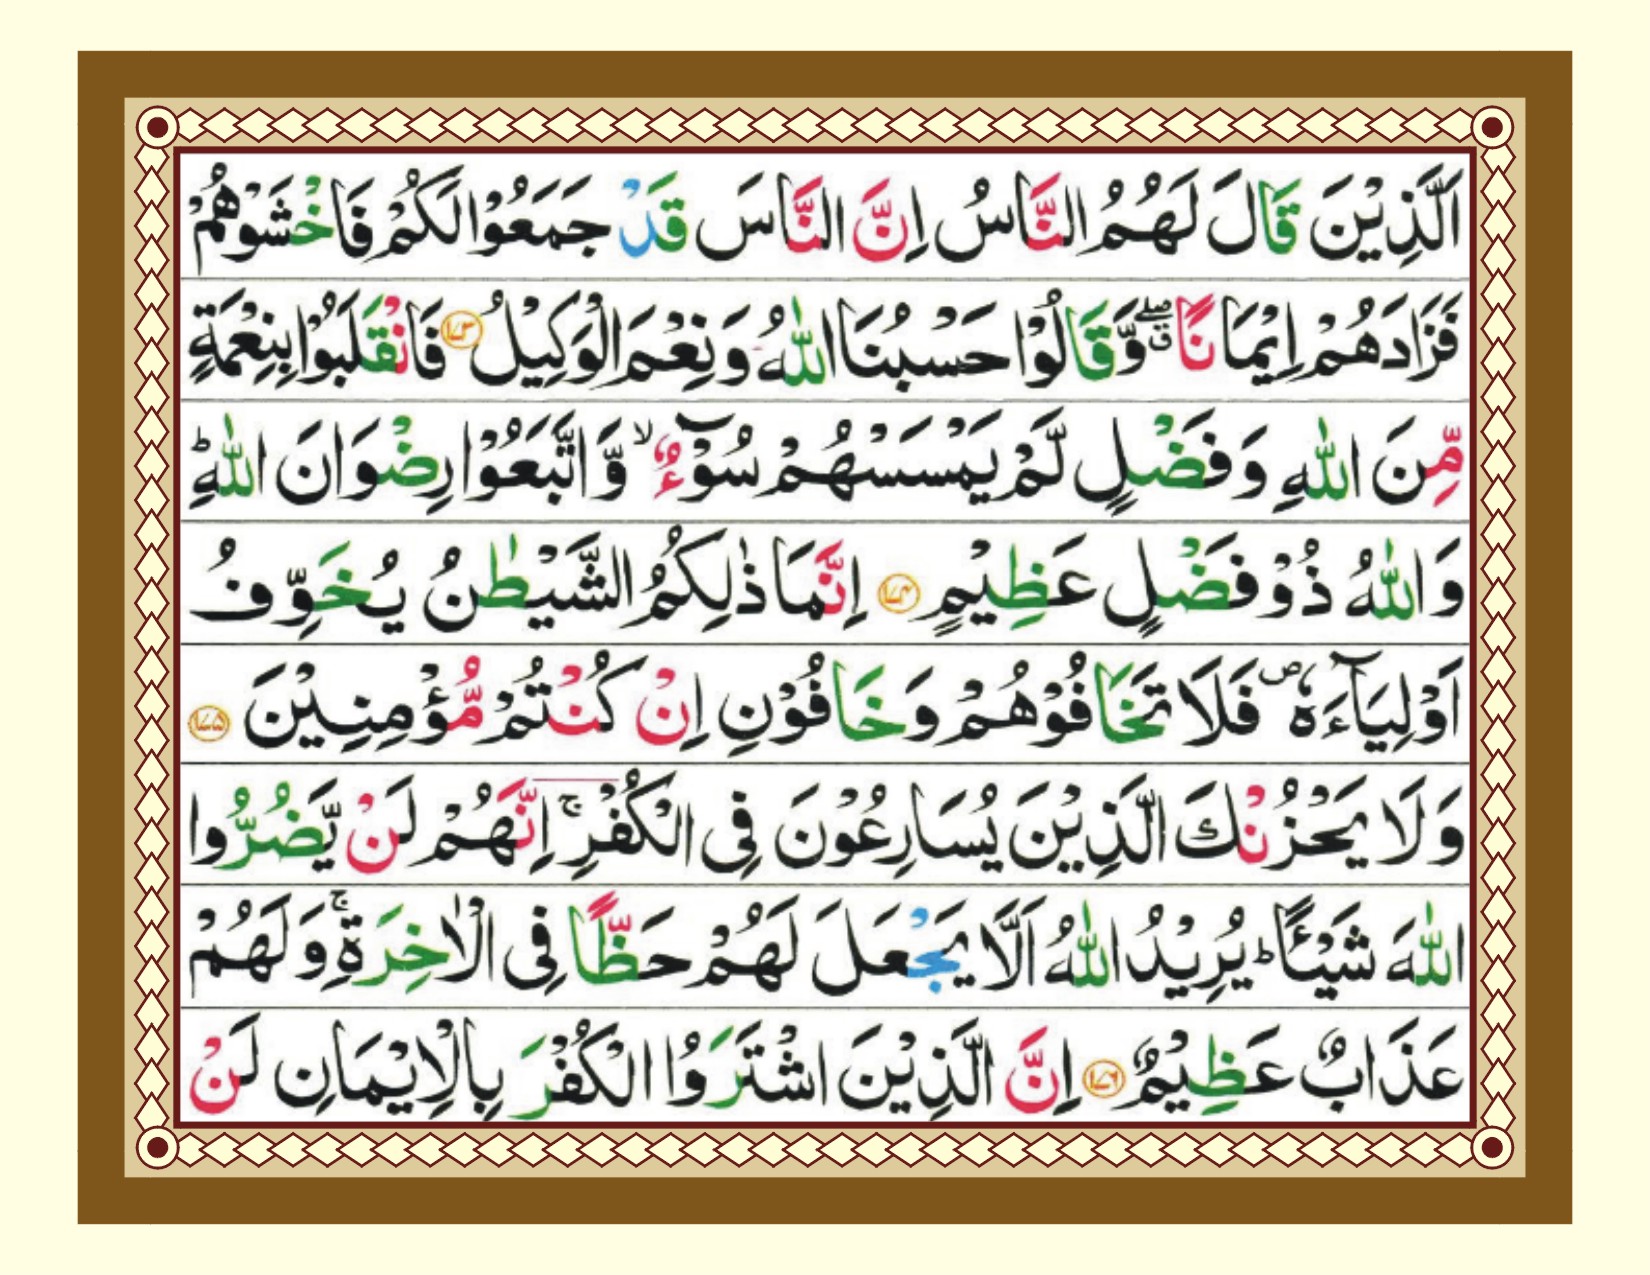 اَلَّذِيْنَ قَالَ لَهُمُ النَّاسُ اِنَّ النَّاسَ قَدْ جَمَعُوْا لَكُمْ فَاخْشَوْهُمْ
فَزَادَهُمْ اِيْمَانًا ۖۗ وَّقَالُوْا حَسْبُنَا اللّٰهُ وَنِعْمَ الْوَكِيْلُ ﴿۱۷۳﴾ فَانْقَلَبُوْا بِنِعْمَةٍ
مِّنَ اللّٰهِ وَفَضْلٍ لَّمْ يَمْسَسْهُمْ سُوْٓءٌ ۙ وَّاتَّبَعُوْا رِضْوَانَ اللّٰهِ ؕ
وَاللّٰهُ ذُوْ فَضْلٍ عَظِيْمٍ ﴿۱۷۴﴾ اِنَّمَا ذٰلِكُمُ الشَّيْطٰنُ يُخَوِّفُ
اَوْلِيَآءَهٗ ۪ فَلَا تَخَافُوْهُمْ وَخَافُوْنِ اِنْ كُنْتُمْ مُّؤْمِنِيْنَ ﴿۱۷۵﴾
وَلَا يَحْزُنْكَ الَّذِيْنَ يُسَارِعُوْنَ فِى الْكُفْرِ ۚ اِنَّهُمْ لَنْ يَّضُرُّوا
اللّٰهَ شَيْـًٔا ؕ يُرِيْدُ اللّٰهُ اَلَّا يَجْعَلَ لَهُمْ حَظًّا فِى الْاٰخِرَةِ ۚ وَلَهُمْ
عَذَابٌ عَظِيْمٌ ﴿۱۷۶﴾ اِنَّ الَّذِيْنَ اشْتَرَوُا الْكُفْرَ بِالْاِيْمَانِ لَنْ